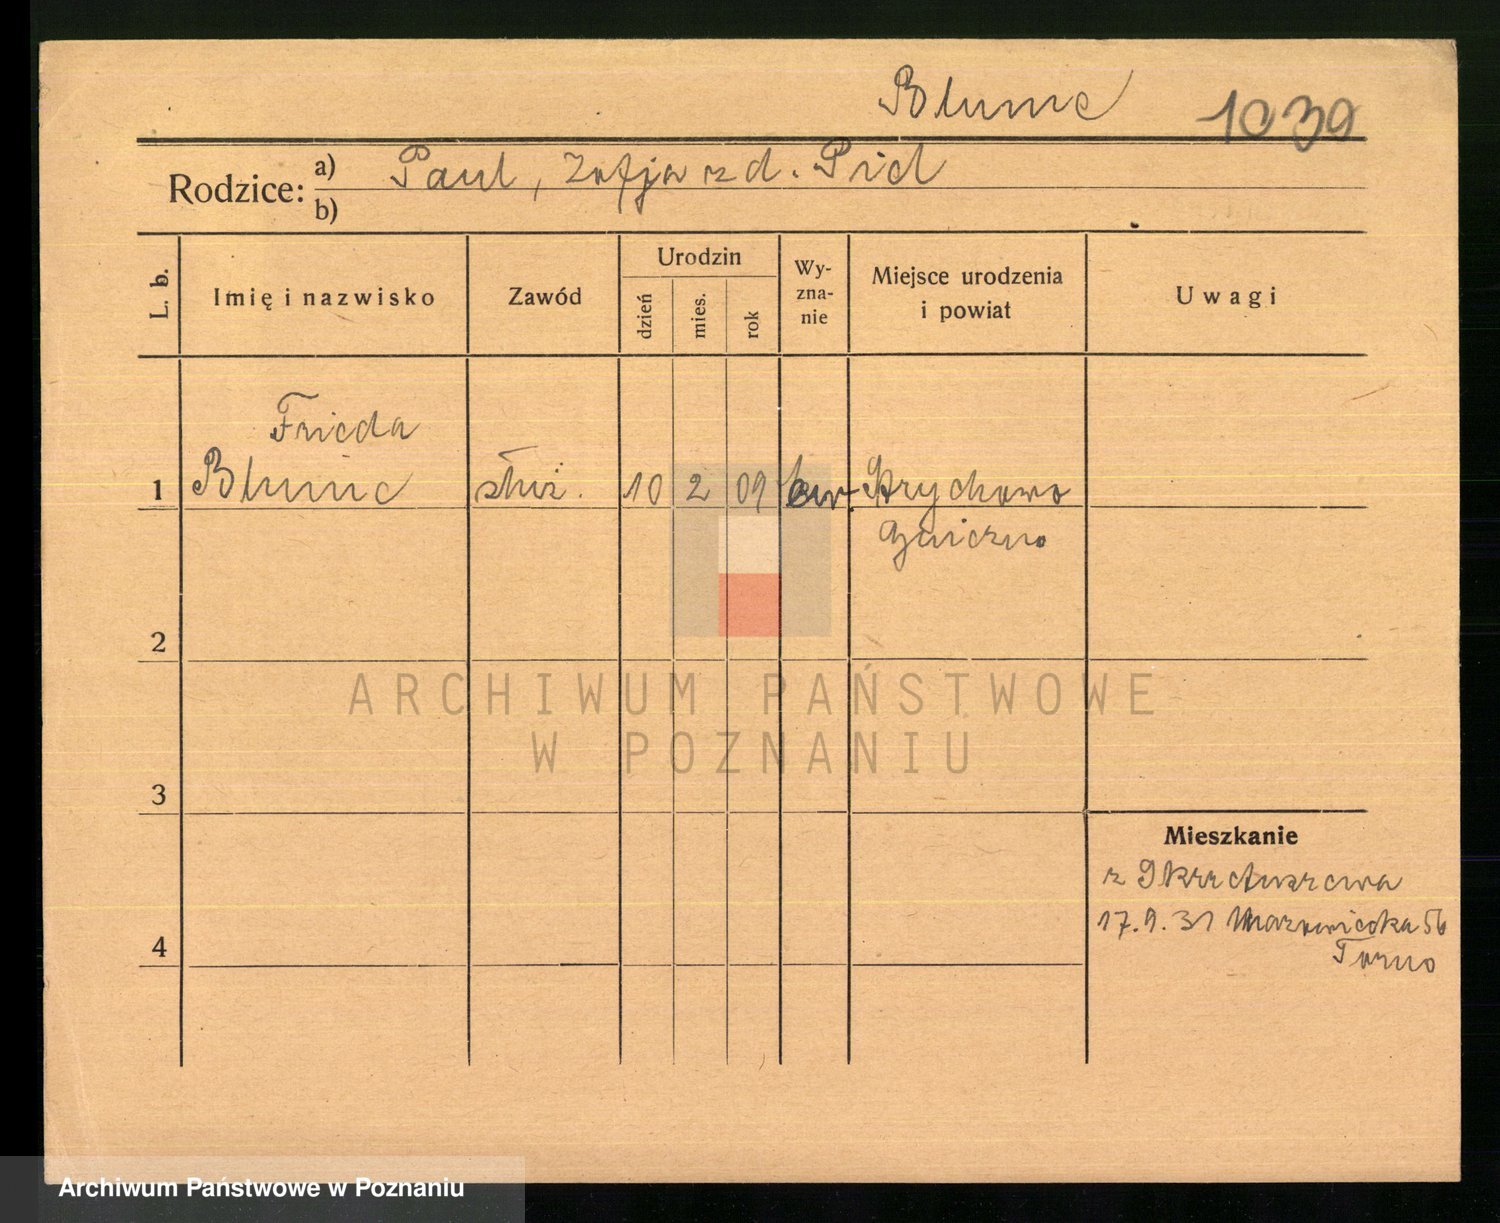 Blume 1039
Rodzice: a) Paul, Zofja z d. Pid
b)
L. b. Imię i nazwisko Zawód Urodzin dzień mies. rok Wyznanie Miejsce urodzenia i powiat Uwagi
Frieda
1 Blume służ. 10 2 09 ew. Strychowo
Gniezno
2
ARCHIWUM PAŃSTWOWE
W POZNANIU
3
Mieszkanie
z
17.9.31 Mazowiecka 56
4
Archiwum Państwowe w Poznaniu